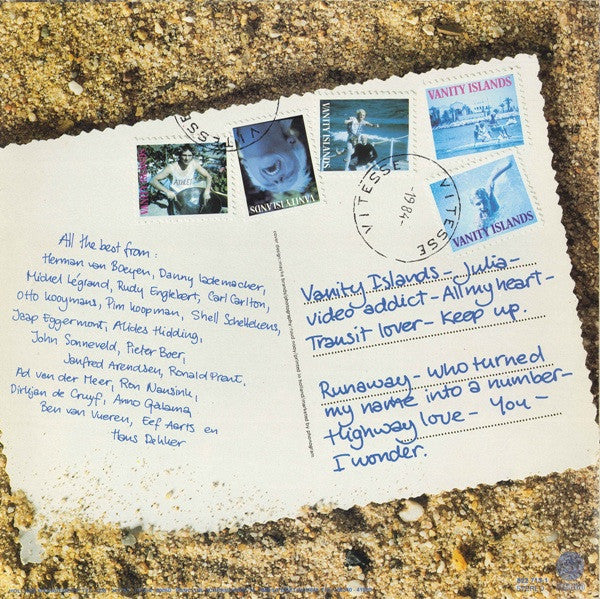 VANITY ISLANDS
VANITY ISLANDS
VANITY ISLANDS
VANITY ISLANDS
VITESSE
VITESSE
-1984-
VITESSE
All the best from:
Herman van Boeyen, Danny Lademacher,
Michel Légrand, Rudy Englebert, Carl Carlton,
Otto Kooymans, Pim Koopman, Shell Schellekens,
Jaap Eggermont, Alides Hidding,
John Sonneveld, Pieter Boer,
Janfred Arendsen, Ronald Prent,
Ad van der Meer, Ron Nausink,
Dirkjan de Cruyf, Anno Galama,
Ben van Vueren, Eef Aarts en
Hans Dekker
Vanity Islands - Julia -
video addict - All my heart -
Transit lover - Keep up.
Runaway - who turned
my name into a number -
Highway love - You -
I wonder.